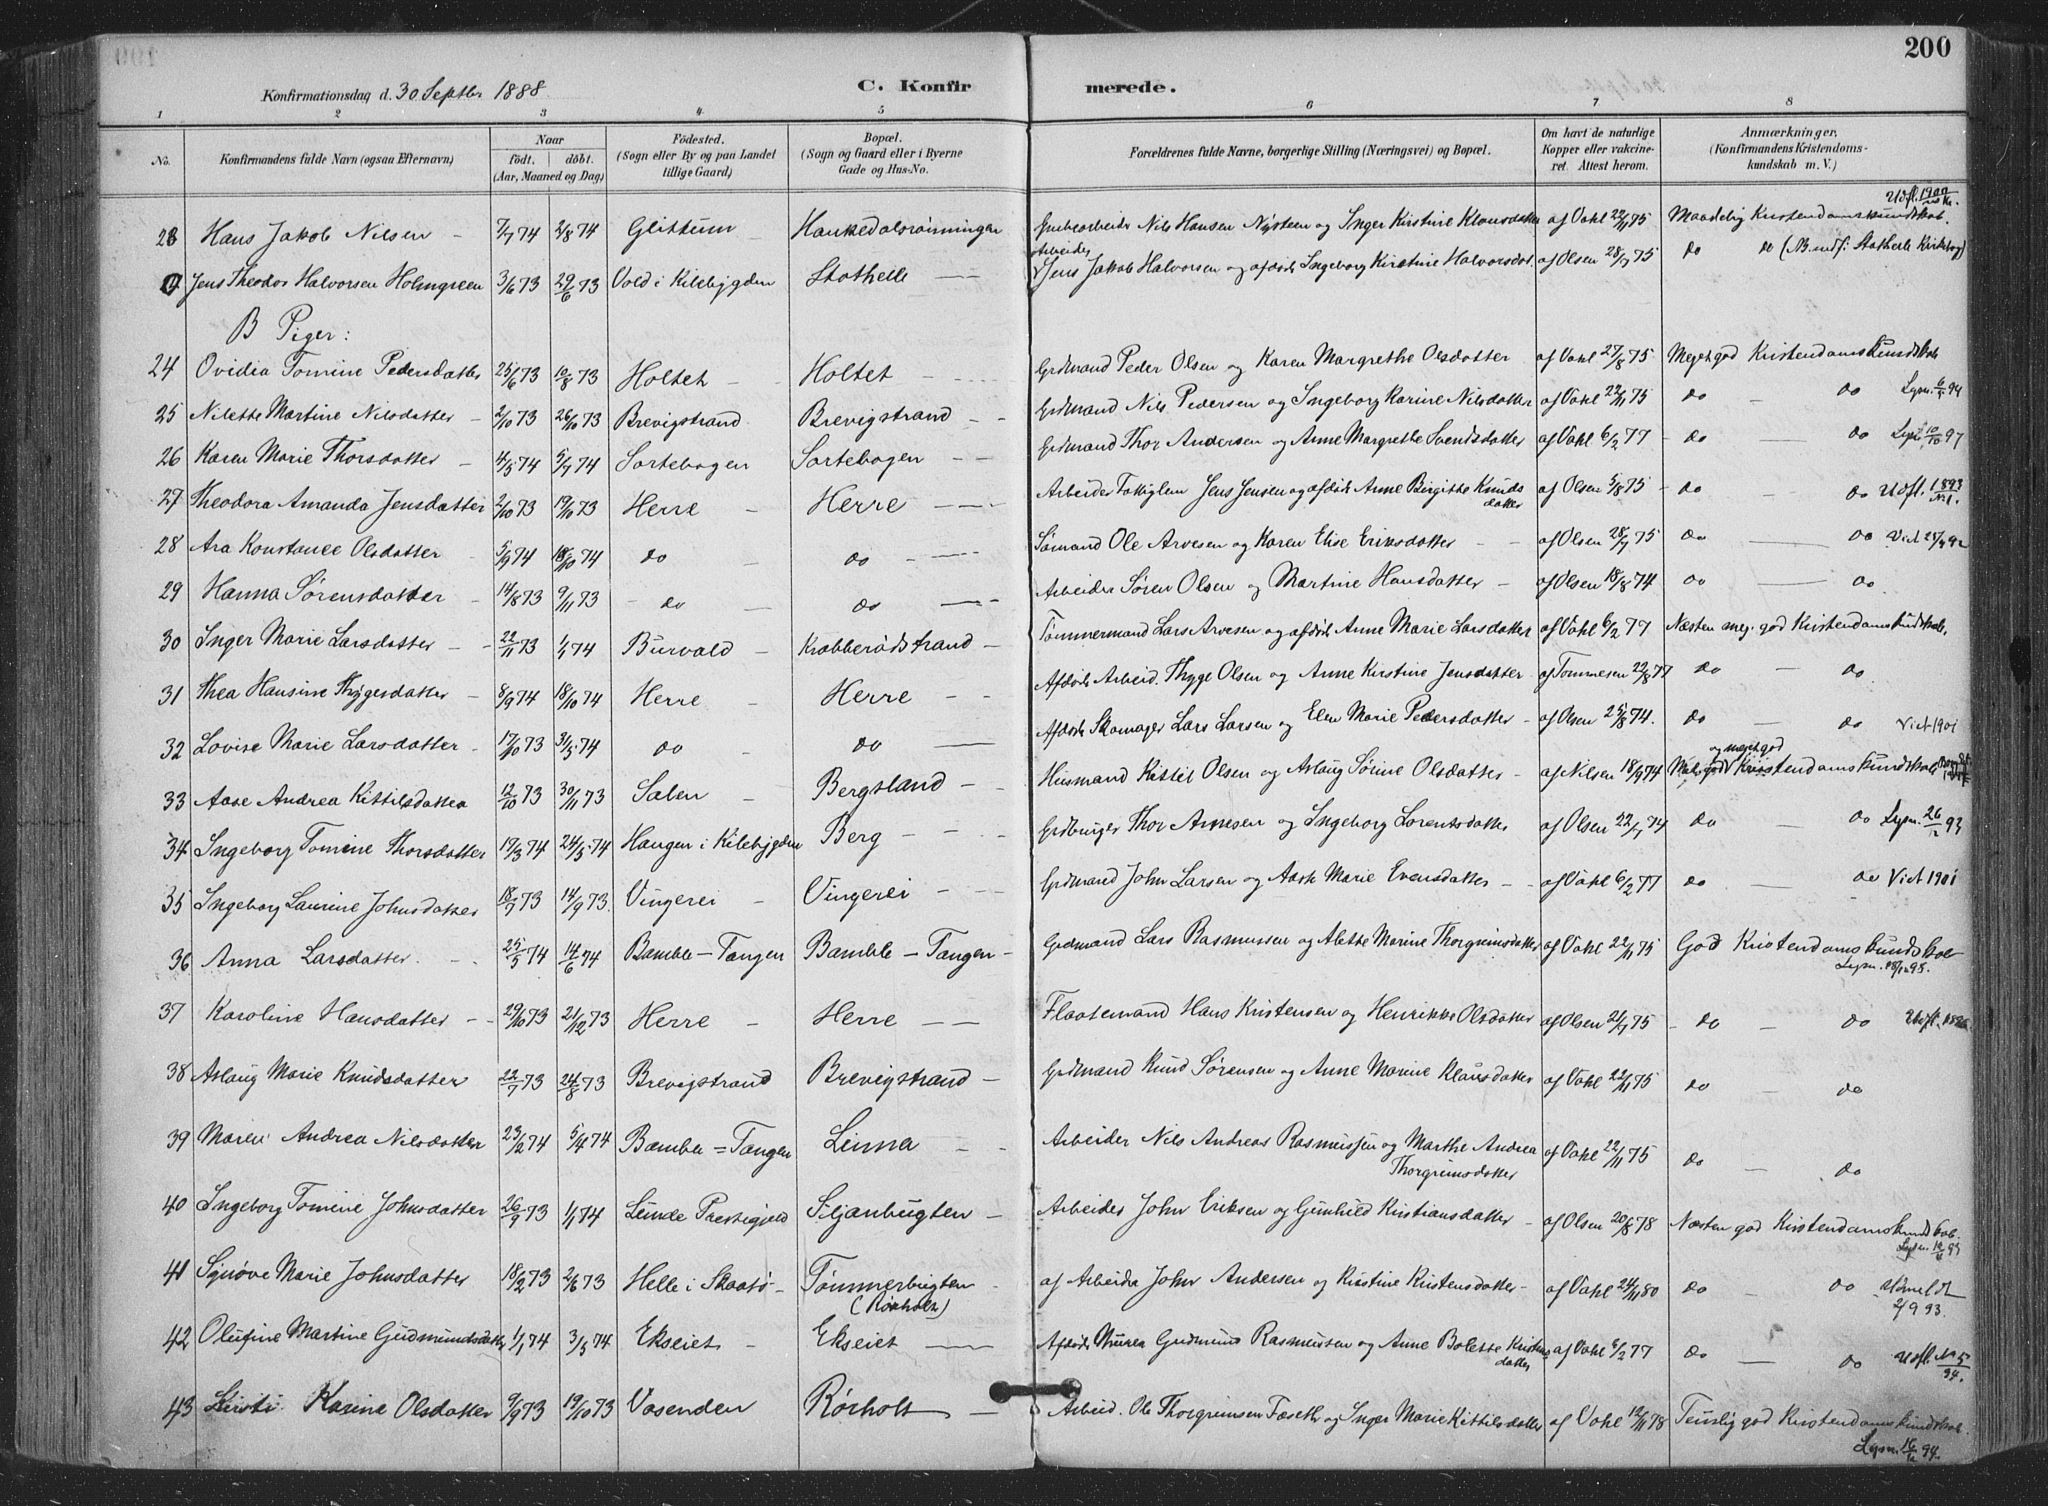 200
Konfirmationsdag d. 30 Septbr 1888
C. Konfirmerede.
1 2 3 4 5 6 7 8
No. Konfirmandens fulde Navn (ogsaa Efternavn) Naar født. døbt. (Aar, Maaned og Dag) Fødested. (Sogn eller By og paa Landet tillige Gaard) Bopæl. (Sogn og Gaard eller i Byerne Gade og Hus-No. Forældrenes fulde Navne, borgerlige Stilling (Næringsvei) og Bopæl. Om havt de naturlige Kopper eller vakcineret. Attest herom. Anmærkninger. (Konfirmandens Kristendomskundskab m. V.)
23 Hans Jakob Nilsen 7/7 74 2/8 74 Glittum Hankedalsrønningen Nils Hansen og Inger Kirstine Klausdatter af Vahl 22/11 75 Maadelig Kristendomskundskab. Udfl. 1900
Jens Theodor Halvorsen Holmgreen 3/6 73 29/6 73 Vold i Kilebygden Stathelle Arbeider Jens Jakob Halvorsen og afdøde Ingeborg Kirstine Halvorsdat. af Olsen 28/7 75 do do
B Piger:
24 Ovidia Tomine Pedersdatter 25/6 73 10/8 73 Holtet Holtet Grdmand Peder Olsen og Karen Margrethe Olsdatter af Vahl 27/8 75 Meget god Kristendomskundskab
25 Nilette Martine Nilsdatter 2/10 73 26/10 73 Brevigstrand Brevigstrand Grdmand Nils Pedersen og Ingeborg Karine Nilsdatter af Vahl 22/11 75 do do Lysn. 6/5 94
26 Karen Marie Thorsdatter 4/5 74 5/7 74 Sortebogen Sortebogen Grdmand Thor Andersen og Anne Margrethe Svendsdatter af Vahl 6/2 77 do do Lysn. 10/10 97
27 Theodora Amanda Jensdatter 2/10 73 19/10 73 Herre Herre Arbeider Jens Jensen og afdøde Anne Birgitte Knudsdatter af Olsen 5/8 75 do do Udfl. 1893 No 1.
28 Ara Konstance Olsdatter 5/9 74 18/10 74 do do Sømand Ole Arvesen og Karen Elise Eriksdatter af Olsen 28/7 75 do do
29 Hanna Sørensdatter 14/8 73 9/11 73 do do Arbeider Søren Olsen og Martine Hansdatter af Olsen 18/8 74 do do
30 Inger Marie Larsdatter 22/11 73 1/1 74 Burvald Krabberødstrand Tømmermand Lars Arvesen og afdøde Anne Marie Larsdatter af Vahl 6/2 77 Næsten meg. god Kristendomskundskab.
31 Thea Hansine Thygesdatter 8/9 74 18/10 74 Herre Herre Afdøde Arbeid. Thyge Olsen og Anne Kirstine Jensdatter af Tommesen 22/8 77 do do
32 Lovise Marie Larsdatter 17/10 73 31/5 74 do do Afdøde Skomager Lars Larsen og Elen Marie Pedersdatter af Olsen 25/8 74. do do Viet 1901
33 Aase Andrea Kittilsdatter 12/10 73 30/11 73 Salen Bergsland Husmand Kittil Olsen og Aslaug Sørine Olsdatter af Nilsen 18/9 74 og meget god Kristendomskundskab
34 Ingeborg Tomine Thorsdatter 17/3 74 24/5 74 Haugen i Kilebygden Berg Grdbruger Thor Arnesen og Ingeborg Lorentsdatter af Olsen 22/7 74 do do Lysn. 26/2 93
35 Ingeborg Laurine Johnsdatter 18/7 73 14/9 73. Vingerei Vingerei Grdmand John Larsen og Aase Marie Evensdatter af Vahl 6/2 77 do do Viet 1901
36 Anna Larsdatter 25/5 74 14/6 74 Bamble-Tangen Bamble-Tangen Grdmand Lars Rasmussen og Alette Marine Thorgrimsdatter af Vahl 22/11 75 God Kristendomskundskab
Lysn. 18/12 98.
37 Karoline Hansdatter 29/10 73 21/12 73 Herre Herre Flaatemand Hans Kristensen og Henrikke Olsdatter af Olsen 21/7 75 do do Udfl.
38 Aslaug Marie Knudsdatter 22/7 73 24/8 73 Brevigstrand Brevigstrand Grdmand Knud Sørensen og Anne Marine Klausdatter af Vahl 22/11 75 do do
39 Maren Andrea Nilsdatter 23/2 74 5/4 74 Bamble=Tangen Linna Arbeider Nils Andreas Rasmussen og Marthe Andrea Thorgrimsdatter af Vahl 22/11 75 do do
40 Ingeborg Tomine Johnsdatter 26/9 73 1/1 74 Lunde Præstegjeld Siljanbugten Arbeider John Eriksen og Gunhild Kristiansdatter af Olsen 20/8 78 Næsten god Kristendomskundskab.
41 Synøve Marie Johnsdatter 18/2 73 2/6 73 Helle i Skaatø Tømmerbugten (Rørholt) af Arbeider John Andersen og Kirstine Kristensdatter af Vahl 24/11 80 do do Udmeldt 2/9 93.
42 Olufine Martine Gudmundsdatter 1/1 74 3/5 74 Ekseiet Ekseiet Afdøde Murer Gudmund Rasmussen og Anne Bolette Kristensdatter af Vahl 6/2 77 do do Udfl. No 5 94.
43 Kirsti Karine Olsdatter 9/9 73 19/10 73 Vasenden Rørholt Arbeid. Ole Thorgrimsen Faseth og Inger Marie Kittilsdatter af Vahl 12/11 78 Temlig god Kristendomskundskab.
Lysn. 16/12 94.